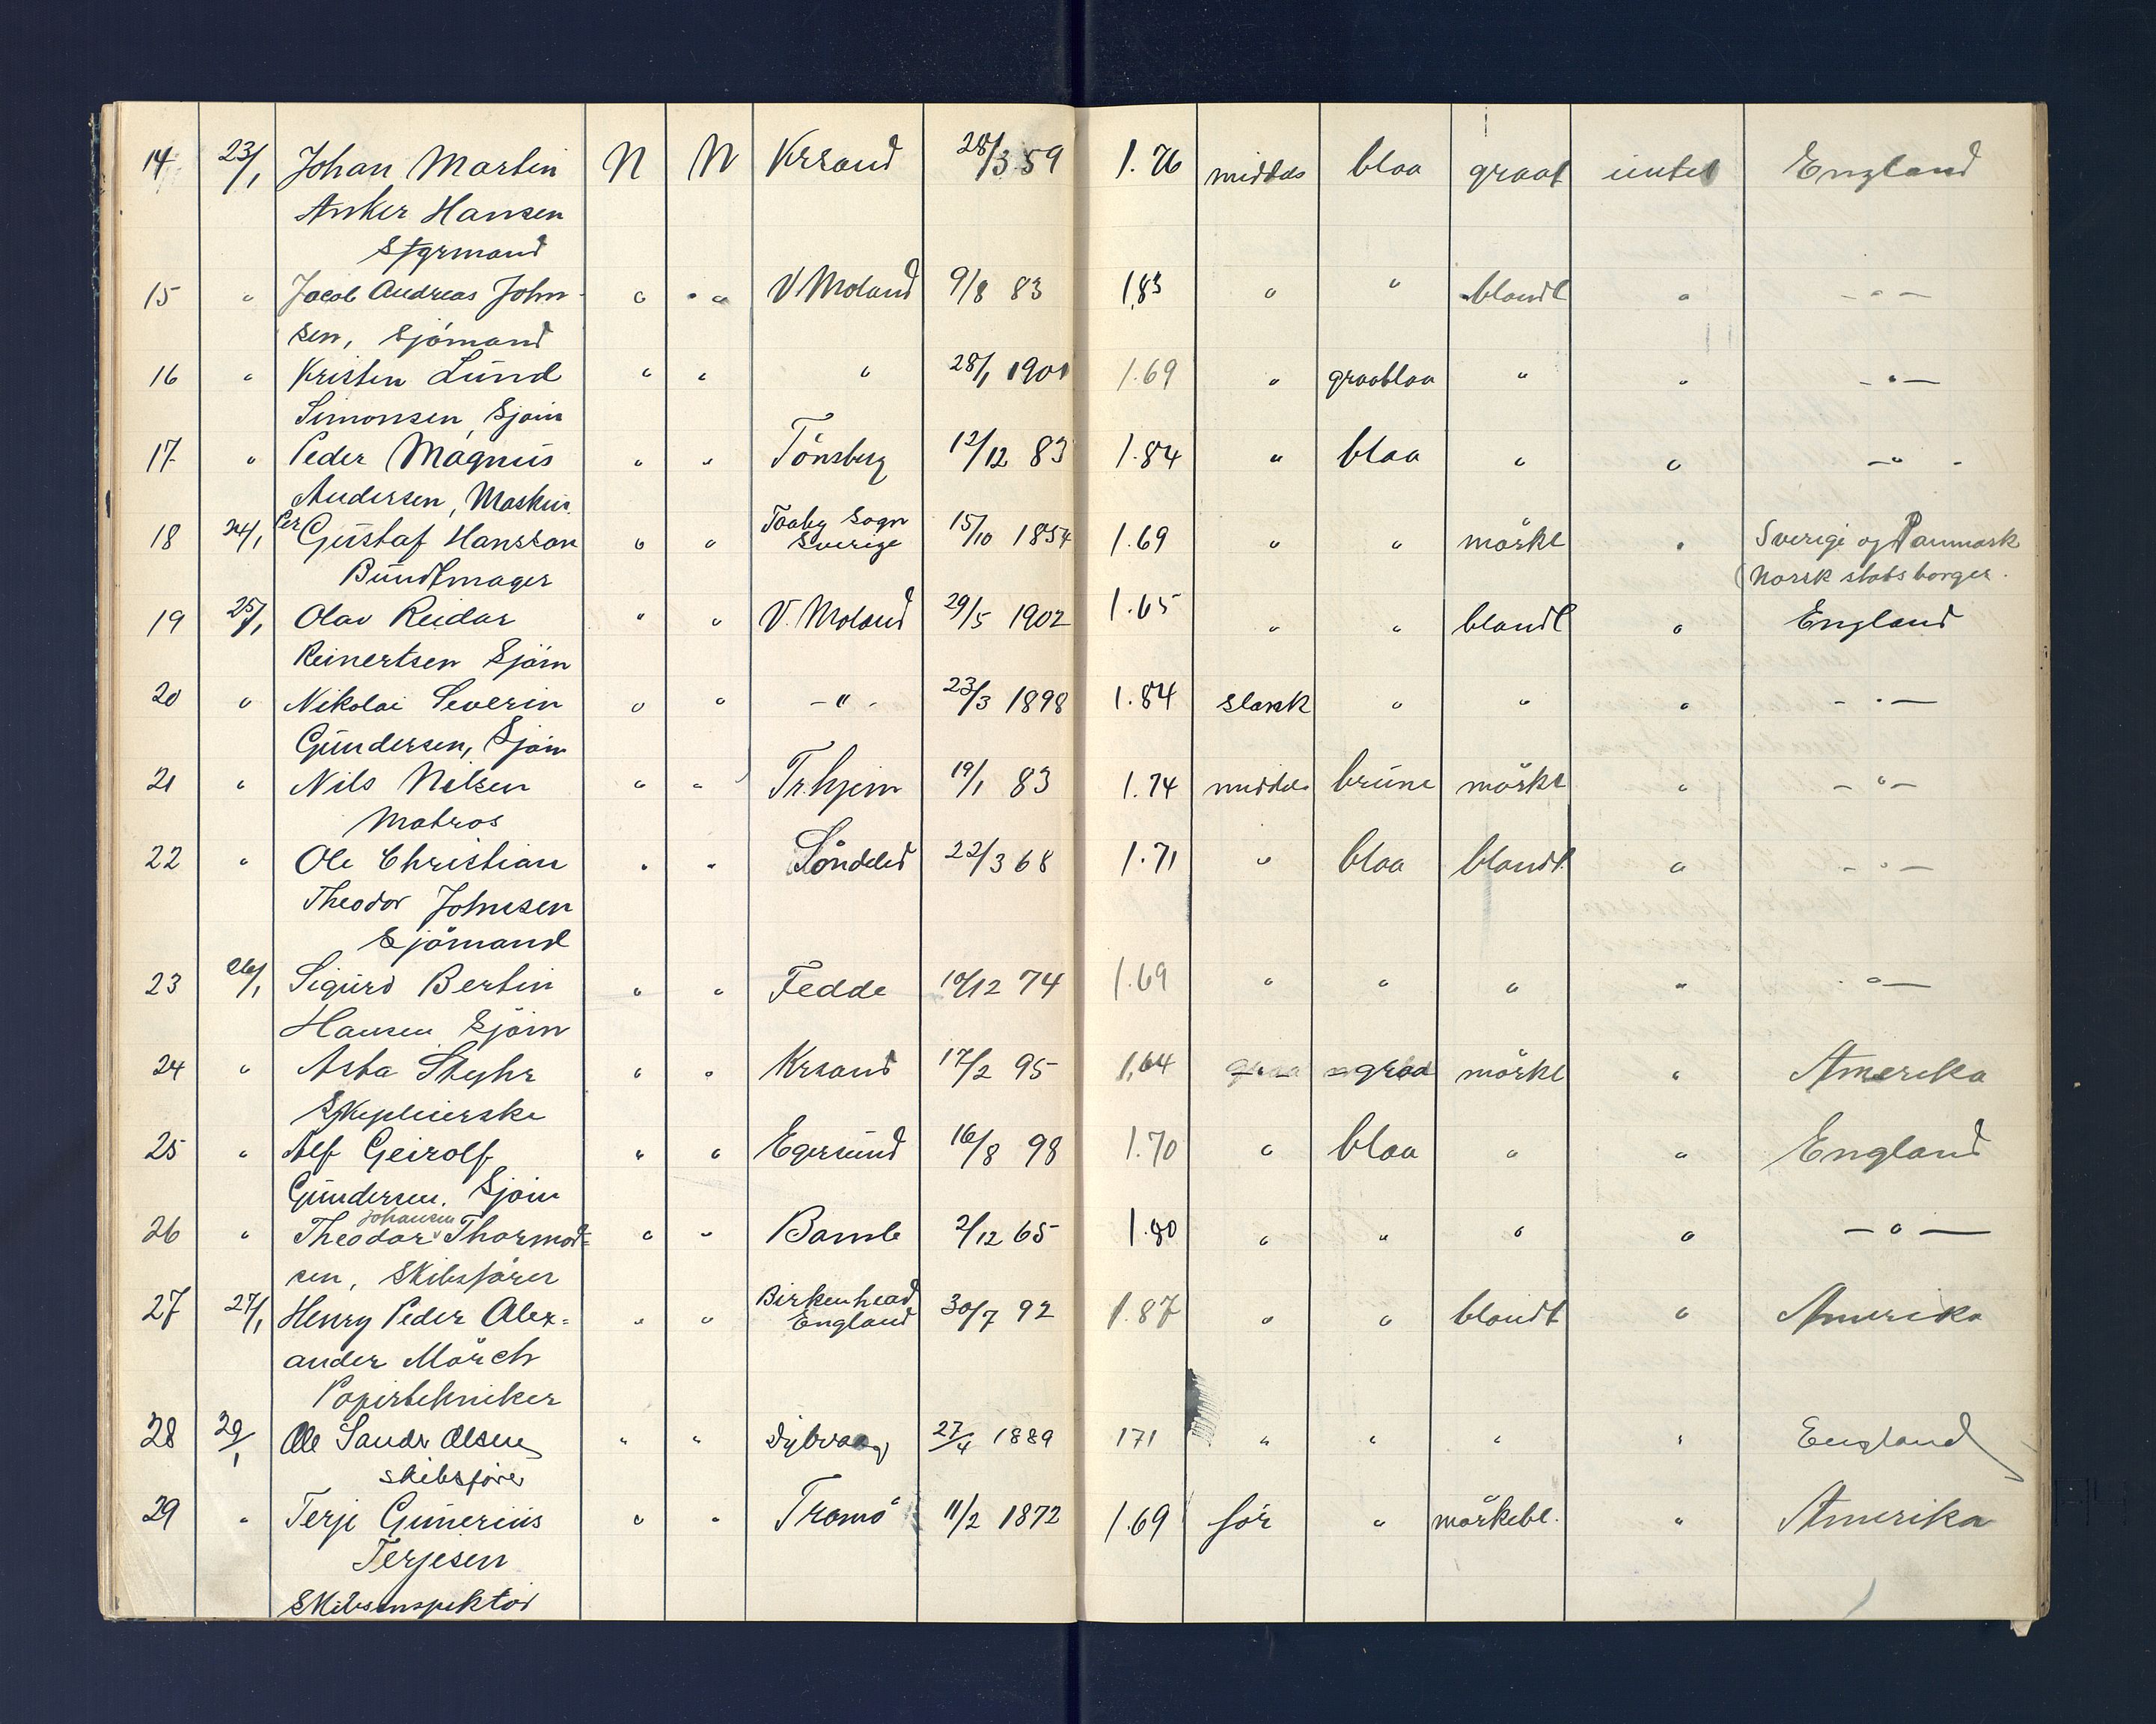 14 23/1 Johan Martin N N Krsand 28/3 59 1.76 middels blaa graat intet England
Anker Hansen
Styrmand
15 " Jacob Andreas John- " " V Moland 9/8 83 1,83 " " blondt " - " -
sen, Sjömand
16 " Kristen Lund " " " 28/1 1901 1.69 " graablaa " " - " -
Simonsen, Sjöm
17 " Peder Magnus " " Tönsberg 12/12 83 1.84 " blaa " " - " -
Andersen, Maskin.
18 24/1 Per Gustaf Hansson " " Taaby Sogn Sverige 15/10 1854 1.69 " " mörkt " Sverige og Danmark
Buntmager (Norsk statsborger.
19 25/1 Olav Reidar " " V. Moland 29/5 1902 1.65 " " blondt " England
Reinertsen Sjöm
20 " Nikolai Severin " " - " - 23/3 1898 1.84 slank " " " - " -
Gundersen, Sjöm
21 " Nils Nilsen " " Tr.hjem 19/1 83 1.74 middels brune mörkt " - " -
Matros
22 " Ole Christian " " Söndeled 22/3 68 1.71 " blaa blondt " - " -
Theodor Johnsen
Sjömand
23 26/1 Sigurd Bertin " " Fedde 10/12 74 1.69 " " " " - " -
Hansen Sjöm
24 " Asta Styhr " " Krsand 17/2 95 1,64 - " - graa mörkt " Amerika
25 " Alf Geirolf " " Egersund 16/8 98 1.70 " blaa " " England
Gundersen. Sjöm
26 " Theodor Johansen Thormod= " " Bamle 2/12 65 1.80 " " " " - " -
sen, Skibsförer
27 27/1 Henry Peder Alex= " " Birkenhead England 30/7 92 1.87 " " blondt " Amerika
ander Mörch
Papirtekniker
28 29/1 Ole Sandr Olsen " " Dybvaag 27/4 1889 171 " " " " England
skibsförer
29 " Terje Gunerius " " Tromö 11/2 1872 1.69 för " mörkebl. " Amerika
Terjesen
Skibsinspektör